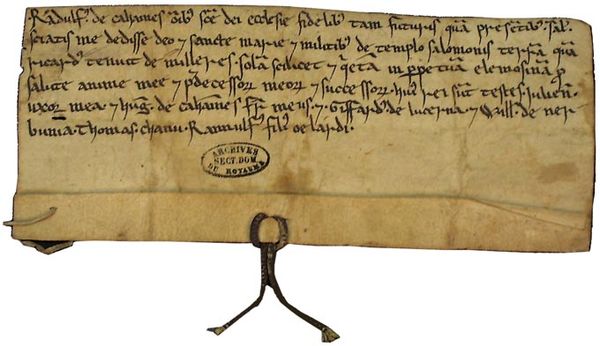 Radulf' de cahaines Om̅ib; sc̅e dei ecclesie fidelib; tam futuris quā presētib; Sal'.
Sciatis me dedisse deo ⁊ sancte marie ⁊ militib; de templo salomonis terrā quā
Ricard' tenuit de milleres. solā scilicet ⁊ q̅etā in ꝑpetuā elemosinā ꝓ
salute anime mee ⁊ p̅decessorꝝ meorꝝ ⁊ successorꝝ. hui' rei sūt testes. iulien̅.
uxor mea. ⁊ hug'. de cahaines. fr̅ meus. ⁊ Giffard' de lucerna. ⁊ Will'. de ner
bunia. Thomas. Ranulf' fili' oelardi.
ARCHIVES
SECT. DOM.
DU ROYAUME